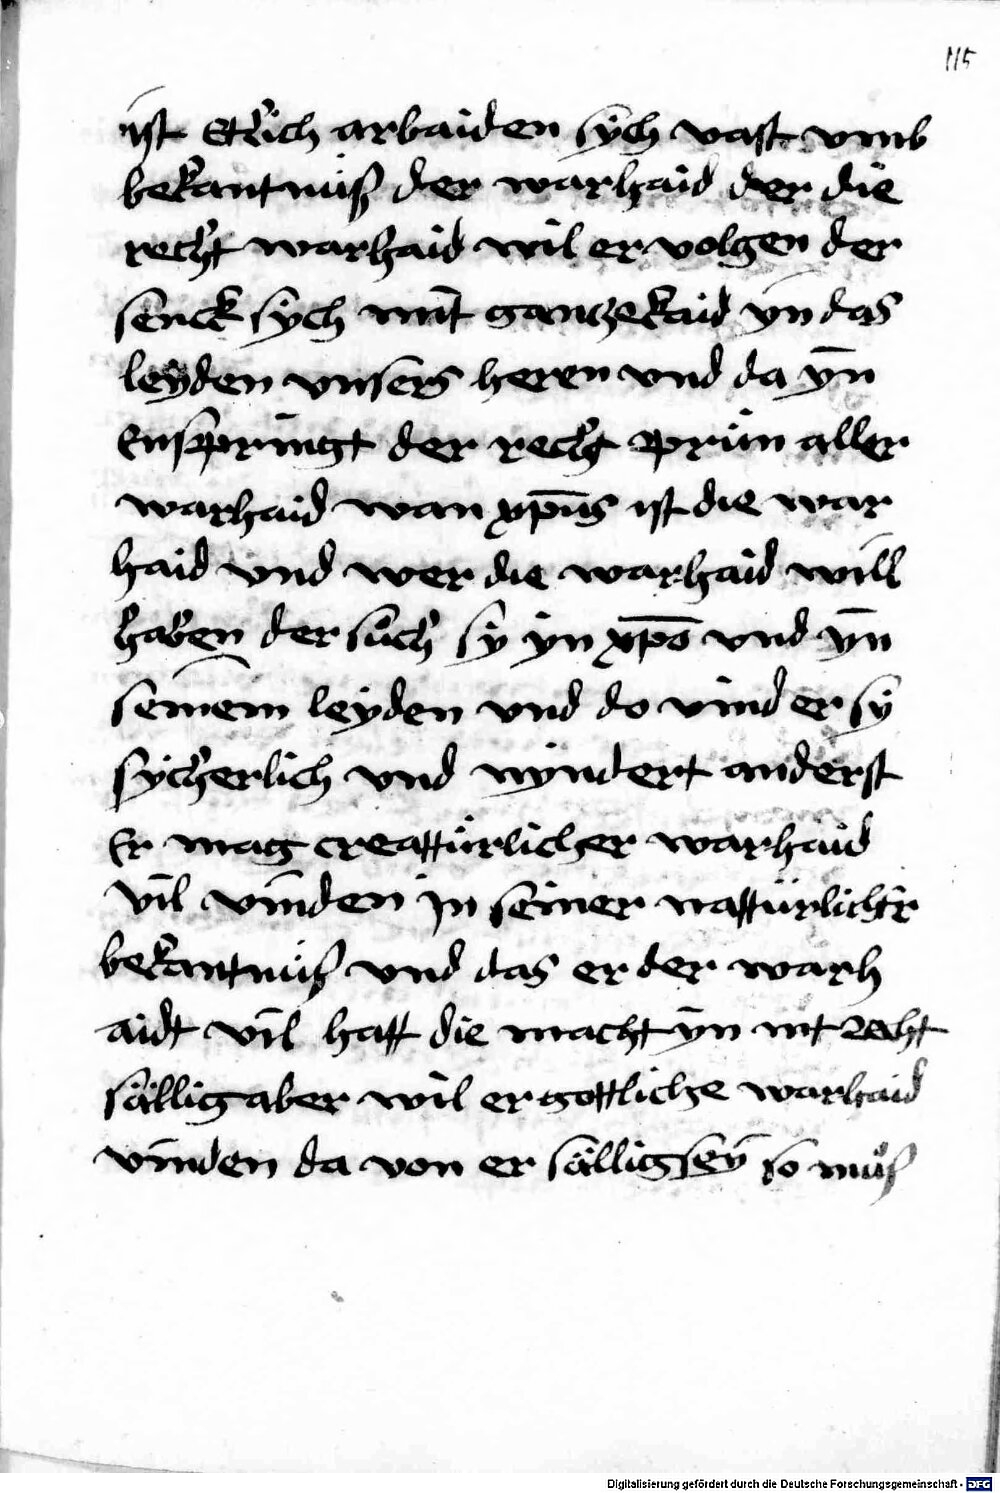 115
ist Etlich arbaiden sych vast vmb
bekantnüß der warhaid der die
recht warhaid wil er volgen der
senck sych mit gantzekaid yn das
leyden vnsers heren vnd da yn̄
Enspringt der recht Prün aller
warhaid wan xp̄us ist die war
haid vnd wer die warhaid will
haben der süch sy yn xp̄o vnd yn̄
seinem leyden vnd do vind er sy
sycherlich vnd nyndert anderst
Er mag creattürlicher warhaid
vil vinden jn seiner nattürlichr
bekantnüß vnd das er der warh
aidt vil hatt die macht yn nit recht
sällig aber wil er gottliche warhaid
vinden da von er sällig sey so müß
Digitalisierung gefördert durch die Deutsche Forschungsgemeinschaft - DFG